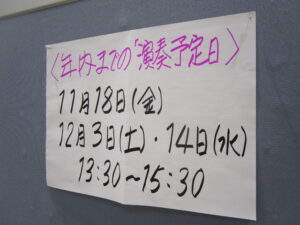 〈年内までの「演奏予定日〉
11月18日(金)
12月3日(土)・14日(水)
13:30~15:30